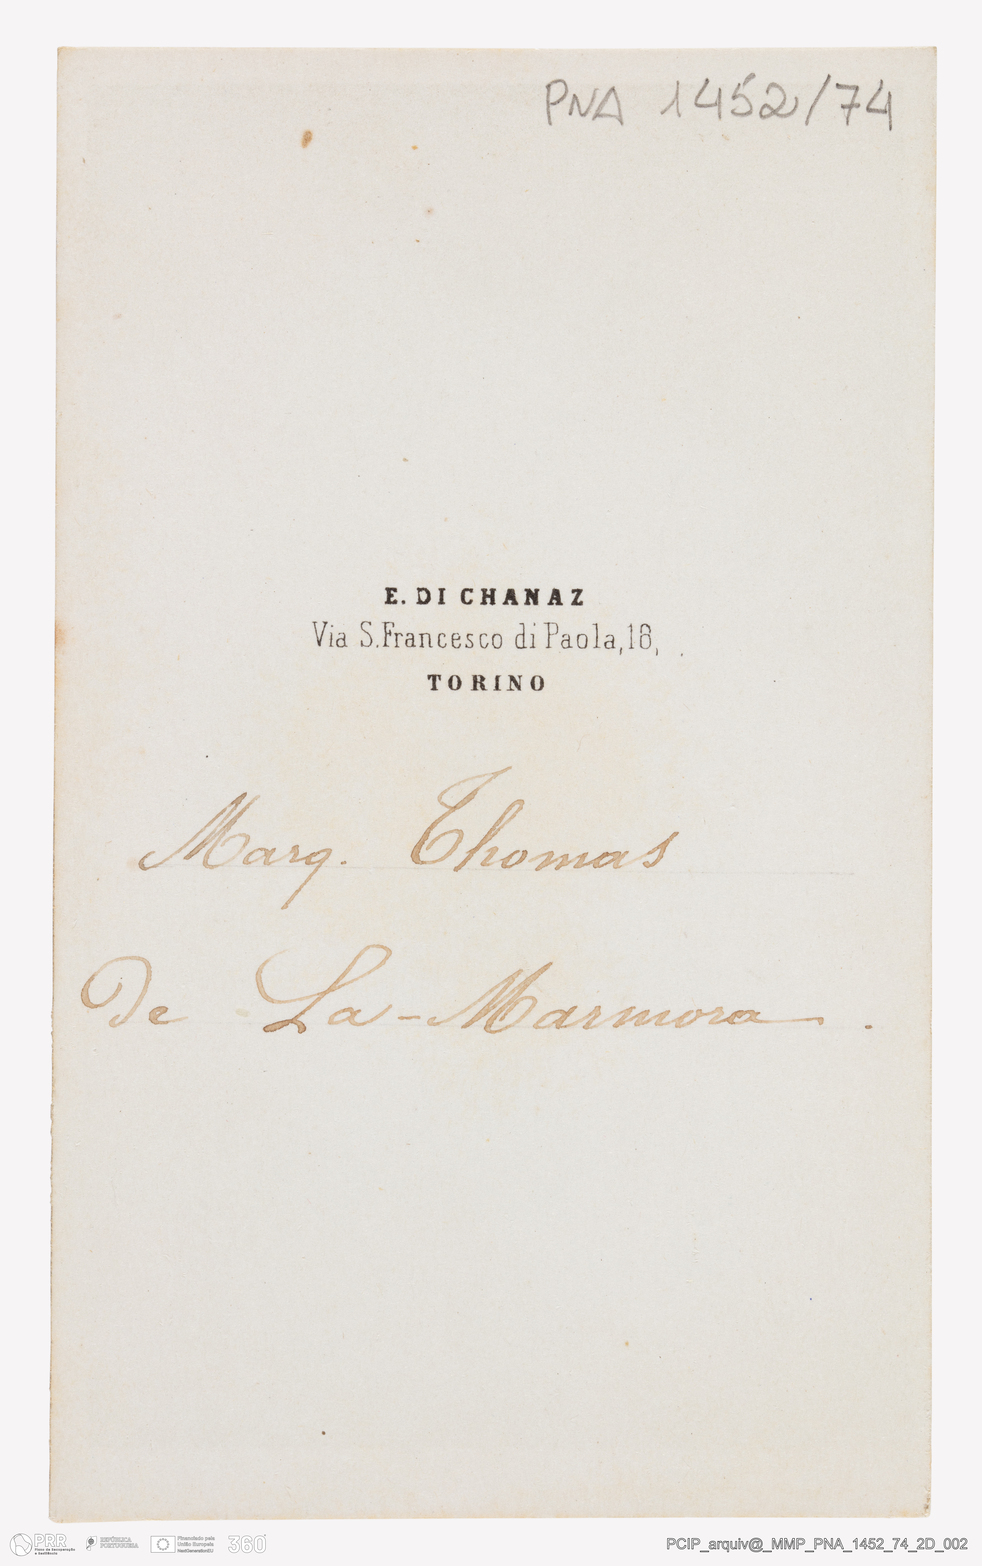 PNA 1452/74
E. DI CHANAZ
Via S. Francesco di Paola, 18,
TORINO
Marq. Thomas
De La-Marmora.
PRR
Plano de Recuperação e Resiliência
REPÚBLICA PORTUGUESA
Financiado pela União Europeia
NextGenerationEU
360°
PCIP_arquiv@_MMP_PNA_1452_74_2D_002